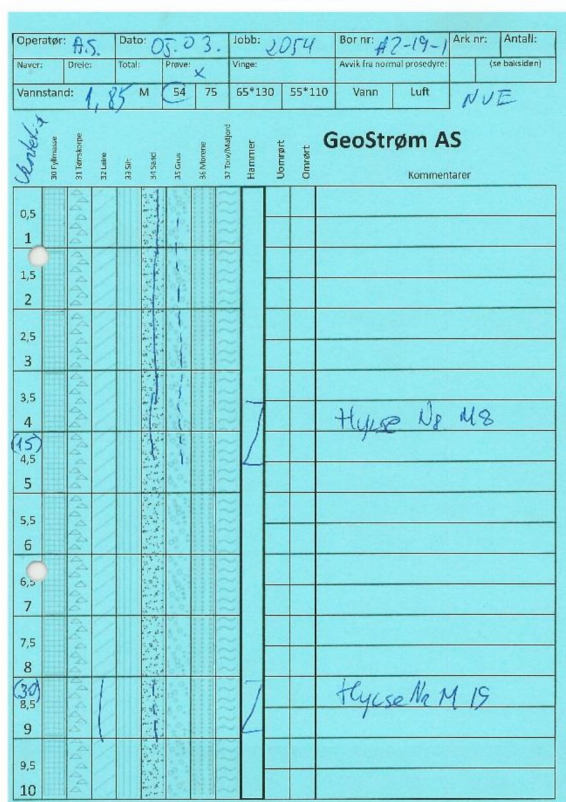 Operatør: A.S. Dato: 05.03. Jobb: 2054 Bor nr: A2-19-1 Ark nr: Antall:
Naver: Dreie: Total: Prøve: x Vinge: Avvik fra normal prosedyre: (se baksiden)
Vannstand: 1,85 M 54 75 65*130 55*110 Vann Luft NVE
GeoStrøm AS
30 Fyllmasse 31 Tørrskorpe 32 Leire 33 Silt 34 Sand 35 Grus 36 Morene 37 Torv/Matjord Hammer Uomrørt Omrørt Kommentarer
0,5
1
1,5
2
2,5
3
3,5
4 Hylse N8 M8
(15)
4,5
5
5,5
6
6,5
7
7,5
8
(30)
8,5 Hylse Nr M 19
9
9,5
10